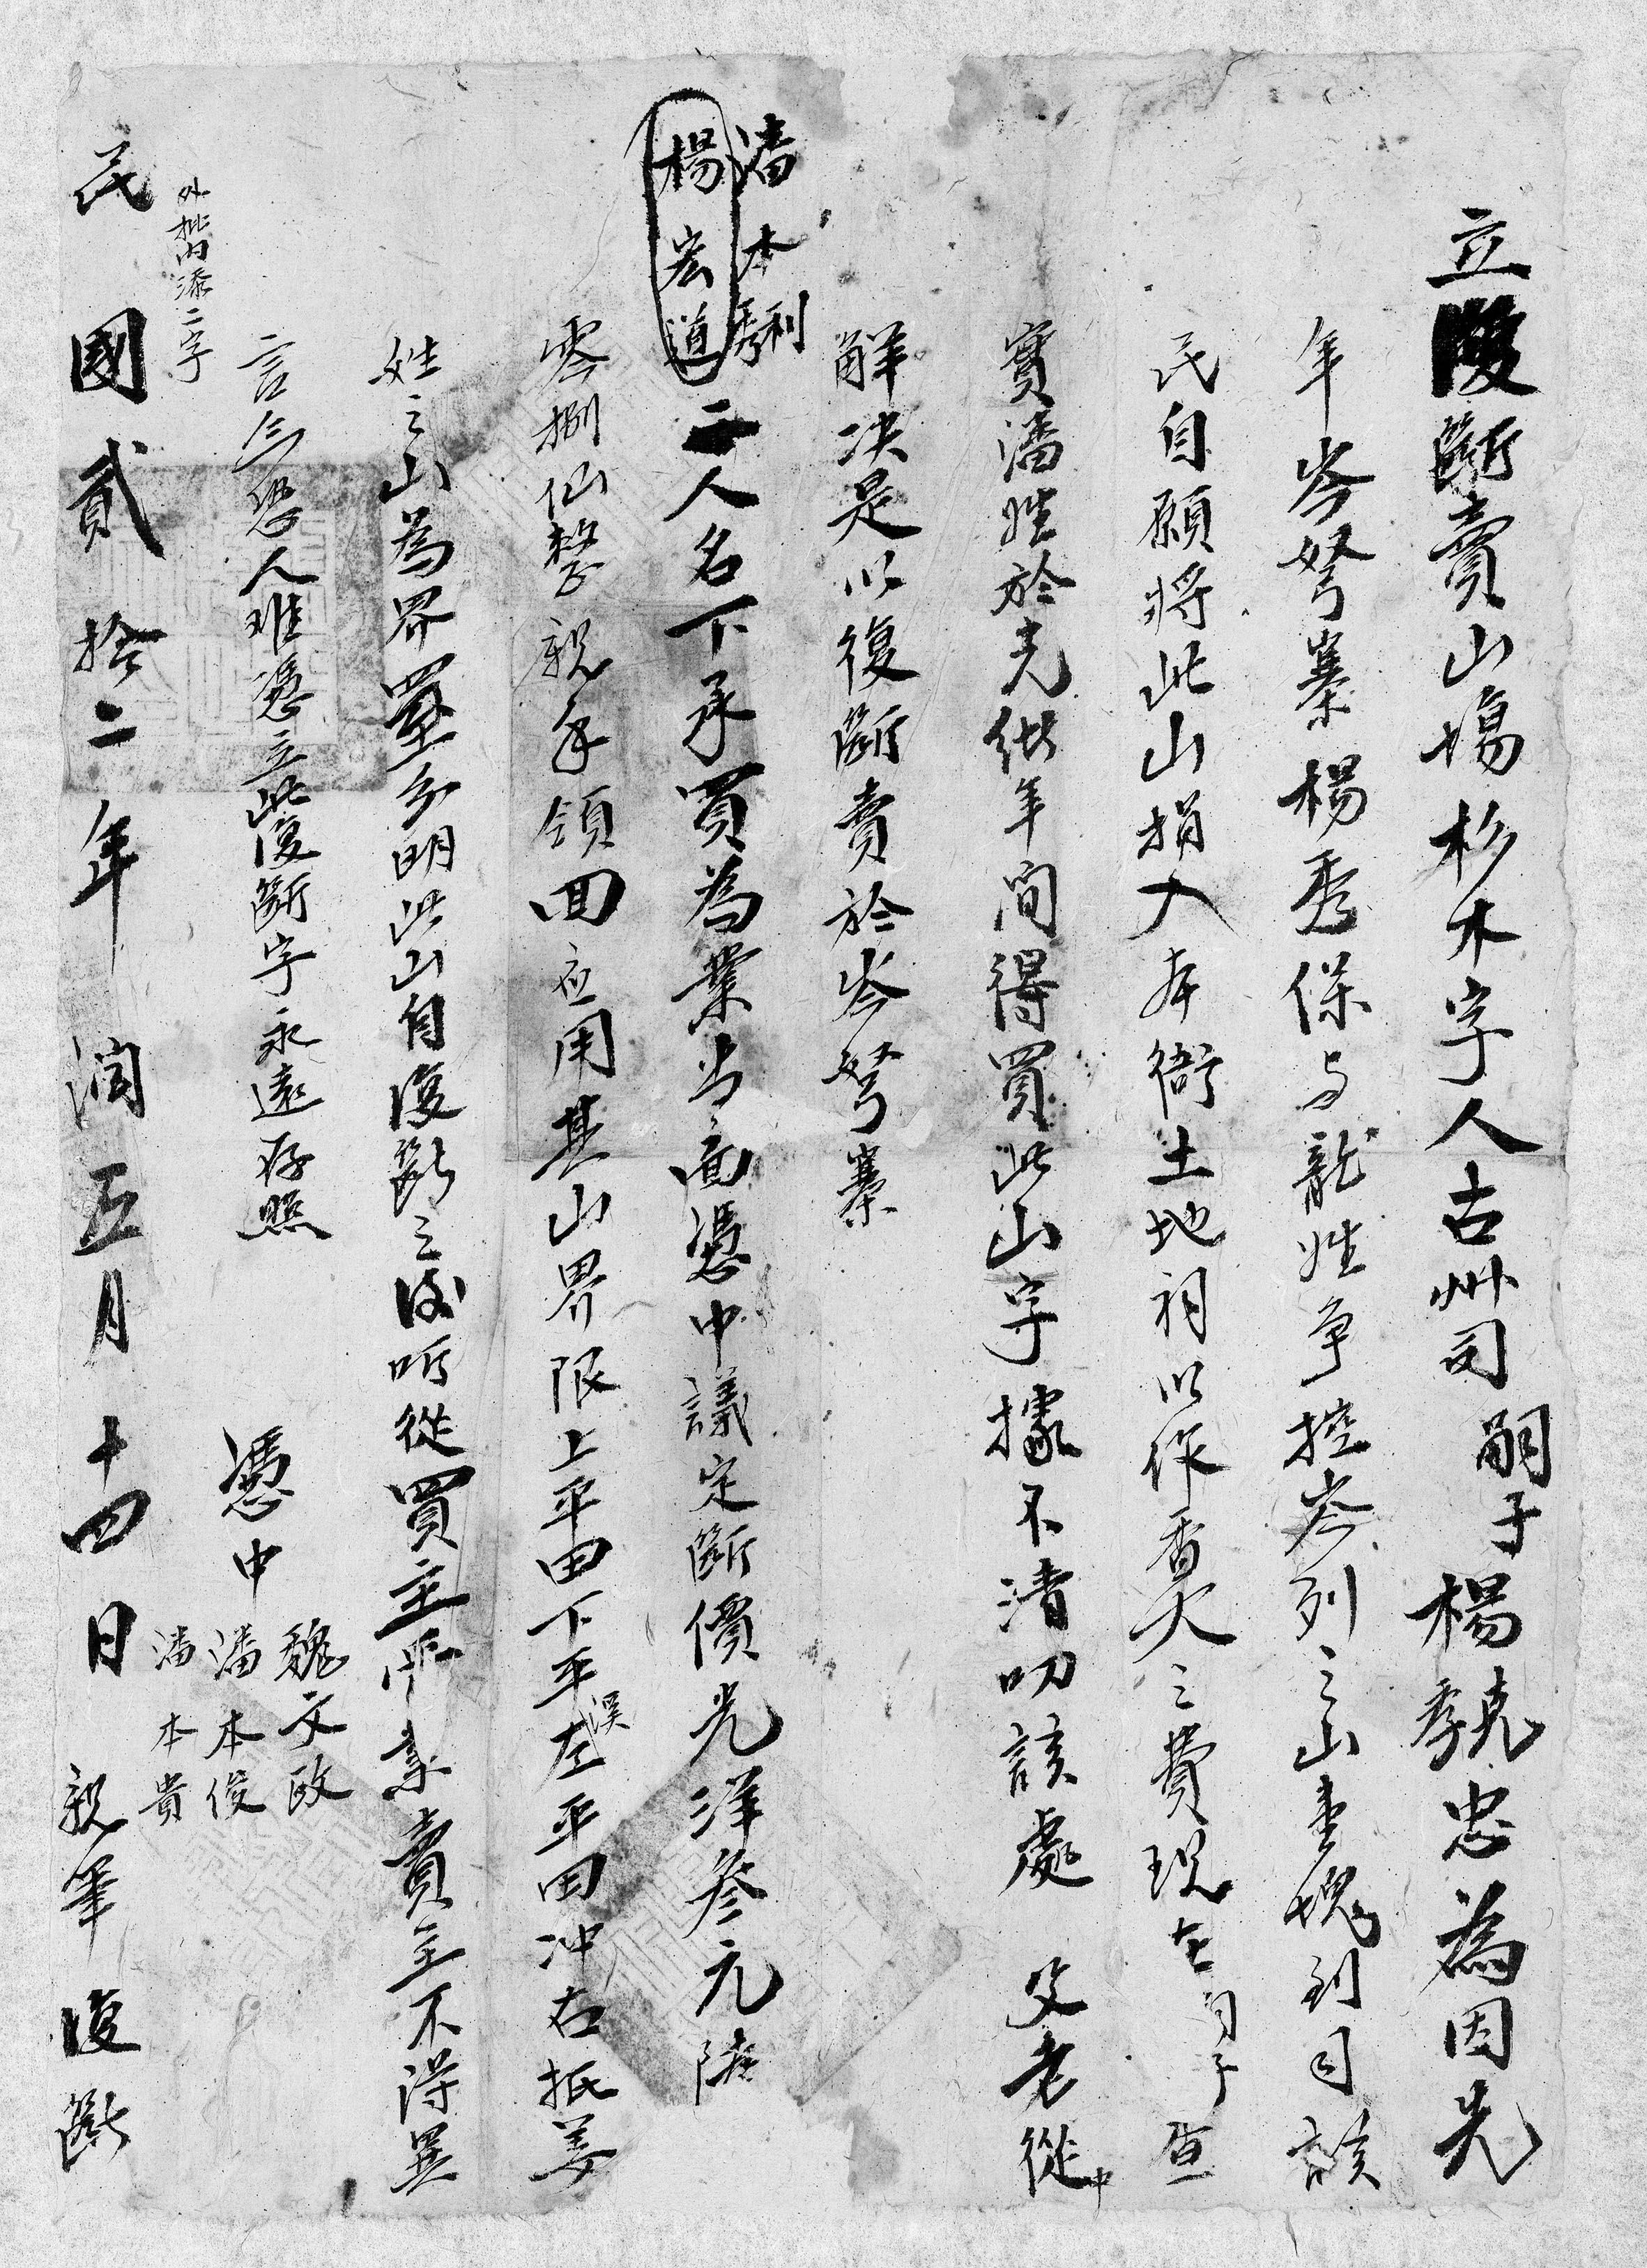 立復斷賣山塲杉木字人古州司嗣子楊克孝忠為因先
年岑努寨楊秀保与龍姓争控岑列之山壹塊到司該
民自願將此山捐入本衙土地祠以作香火之費現在司子查
實潘姓於光緒年间得買此山字據不清叨該處父老從中
解决是以復斷賣於岑努寨
潘本利秀
楊宏道二人名下承買為業当面憑中議定斷價光洋叁元陸
零捌仙整親手領回应用其山界限上平田下平溪左平田冲右抵姜
姓之山為界四至分明此山自復斷之後听從買主所業賣主不得異
言今恐人难憑立此復斷字永遠存照
外批内添二字
憑中
魏文政
潘本俊
潘本貴
民國貳拾二年潤五月十四日親筆復斷